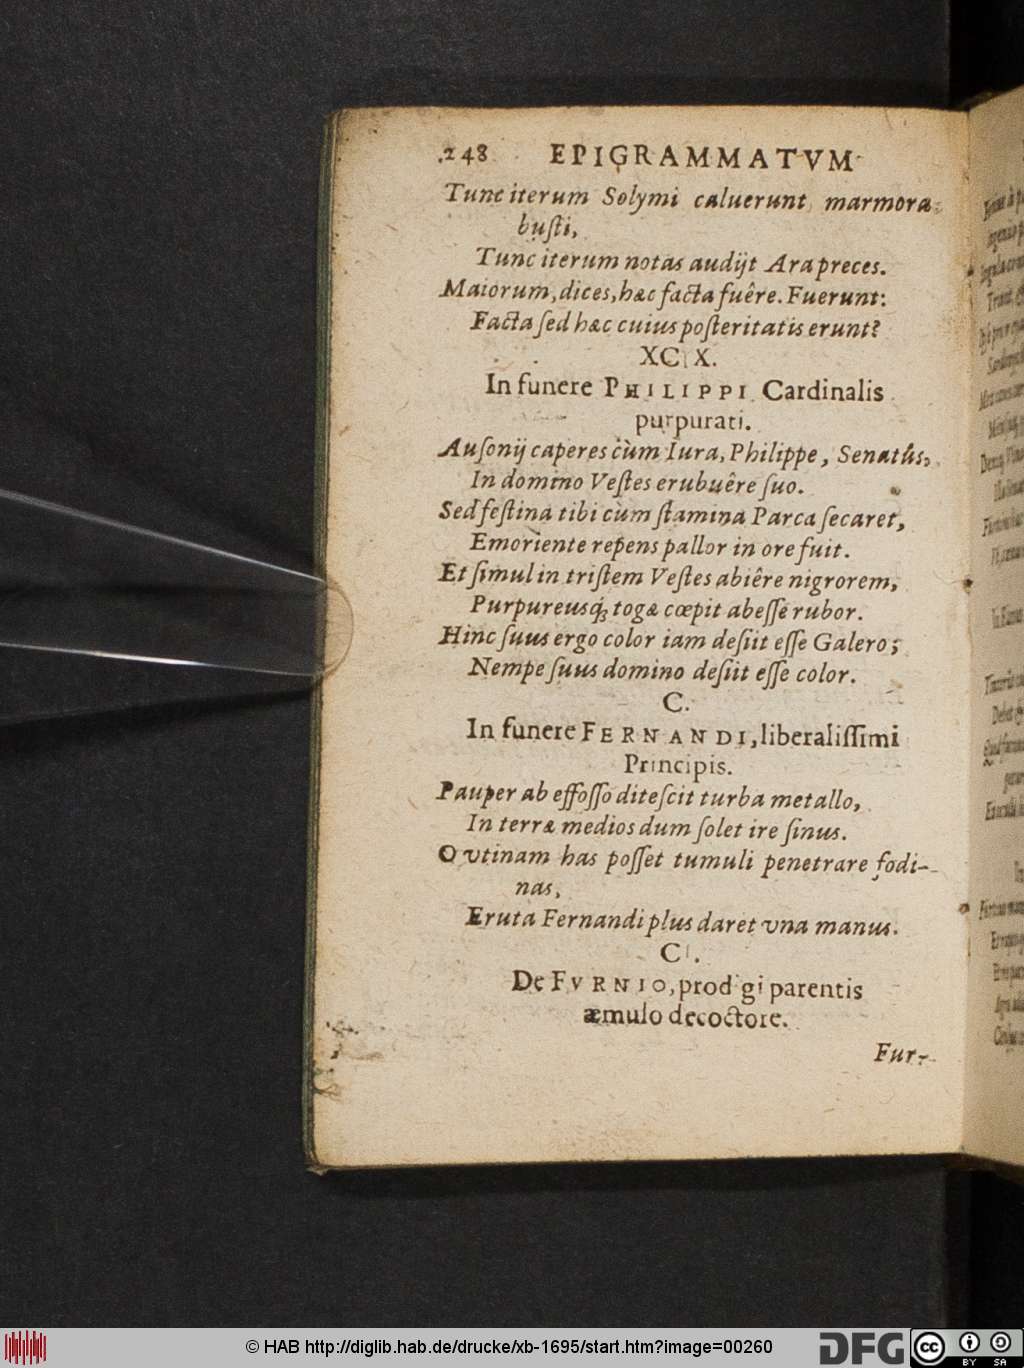 248 EPIGRAMMATVM
Tunc iterum Solymi caluerunt marmora
buſti,
Tunc iterum notas audijt Ara preces.
Maiorum, dices, hæc facta fuêre. Fuerunt:
Facta ſed hæc cuius poſteritatis erunt?
XCIX.
In funere PHILIPPI Cardinalis
purpurati.
Auſonij caperes cùm Iura, Philippe, Senatûs,
In domino Veſtes erubuêre ſuo.
Sed feſtina tibi cùm ſtamina Parca ſecaret,
Emoriente repens pallor in ore fuit.
Et ſimul in triſtem Veſtes abiêre nigrorem,
Purpureusq́; togæ cœpit abeſſe rubor.
Hinc ſuus ergo color iam deſiit eſſe Galero;
Nempe ſuus domino deſiit eſſe color.
C.
In funere FERNANDI, liberaliſſimi
Principis.
Pauper ab effoſſo diteſcit turba metallo,
In terræ medios dum ſolet ire ſinus.
O vtinam has poſſet tumuli penetrare fodi-
nas,
Eruta Fernandi plus daret vna manus.
CI.
De FVRNIO, prodigi parentis
æmulo decoctore.
Fur-
© HAB http://diglib.hab.de/drucke/xb-1695/start.htm?image=00260
DFG
cc BY SA